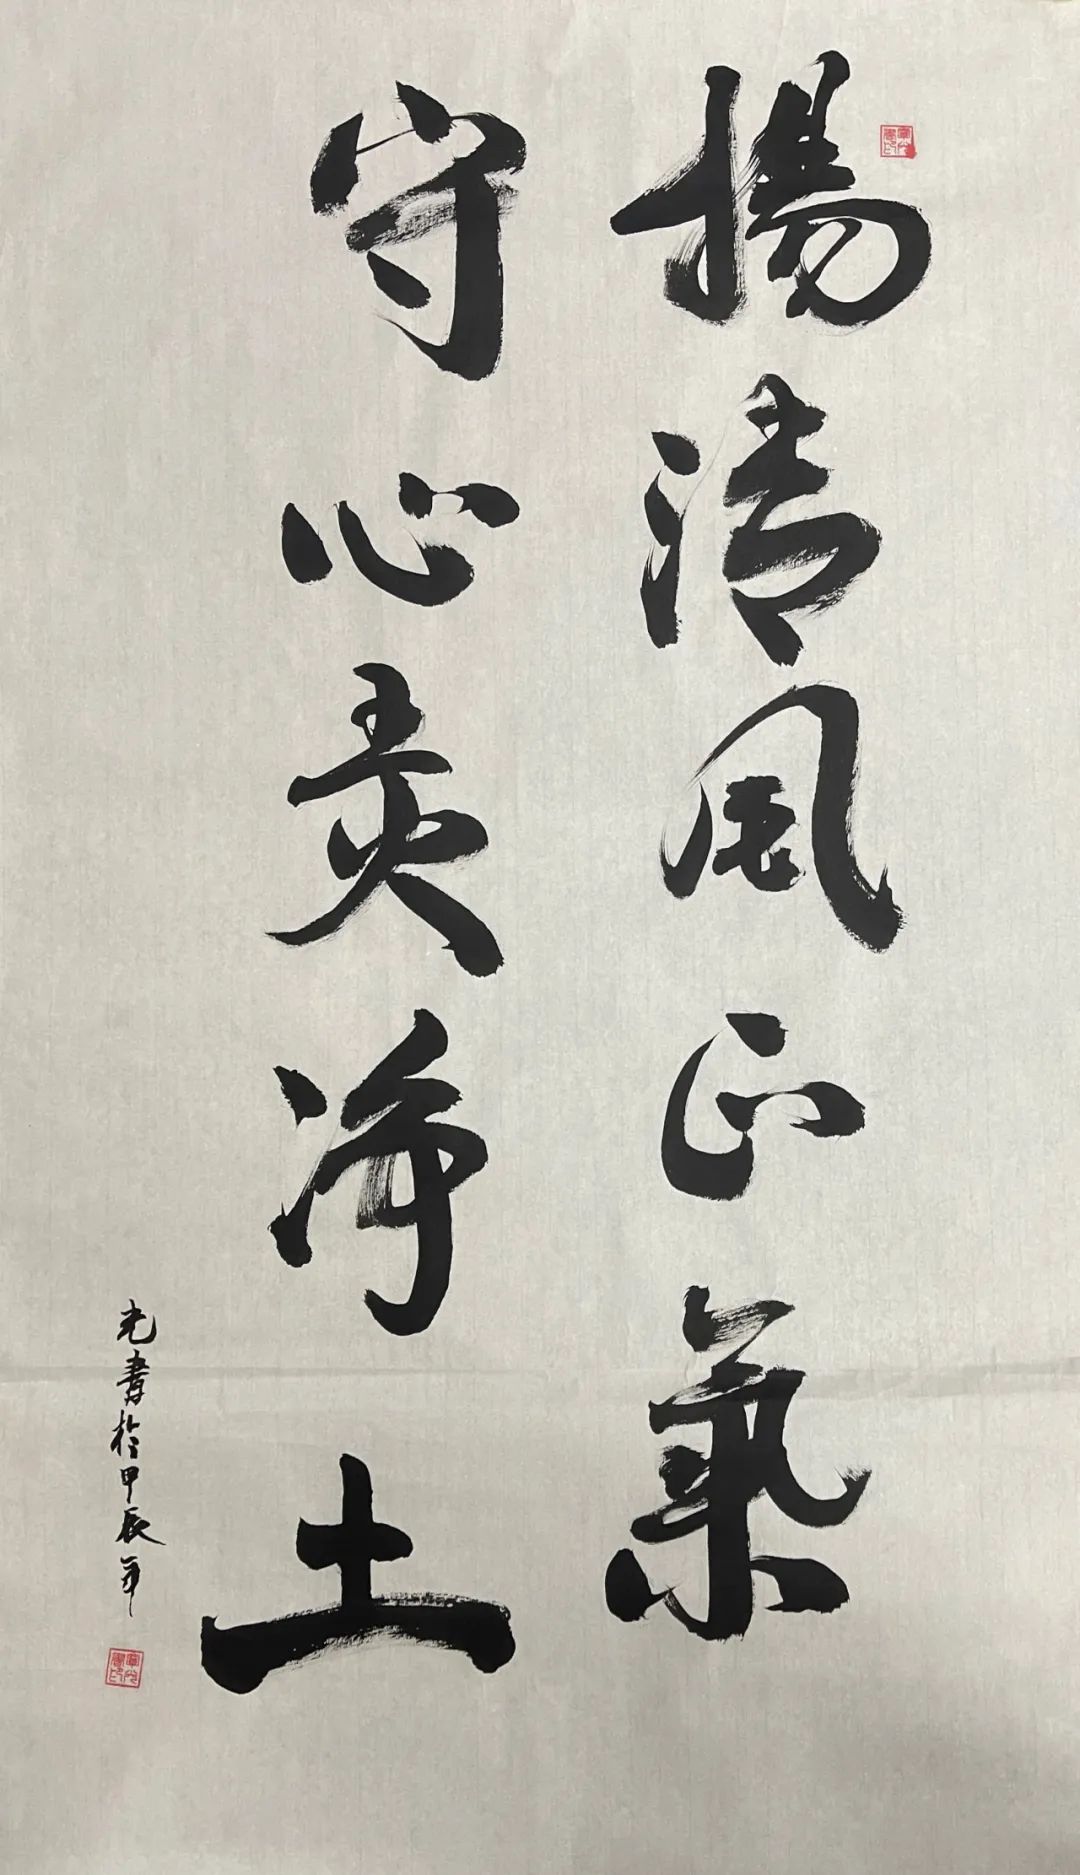 揚清风正氣
守心灵净土
光書於甲辰年